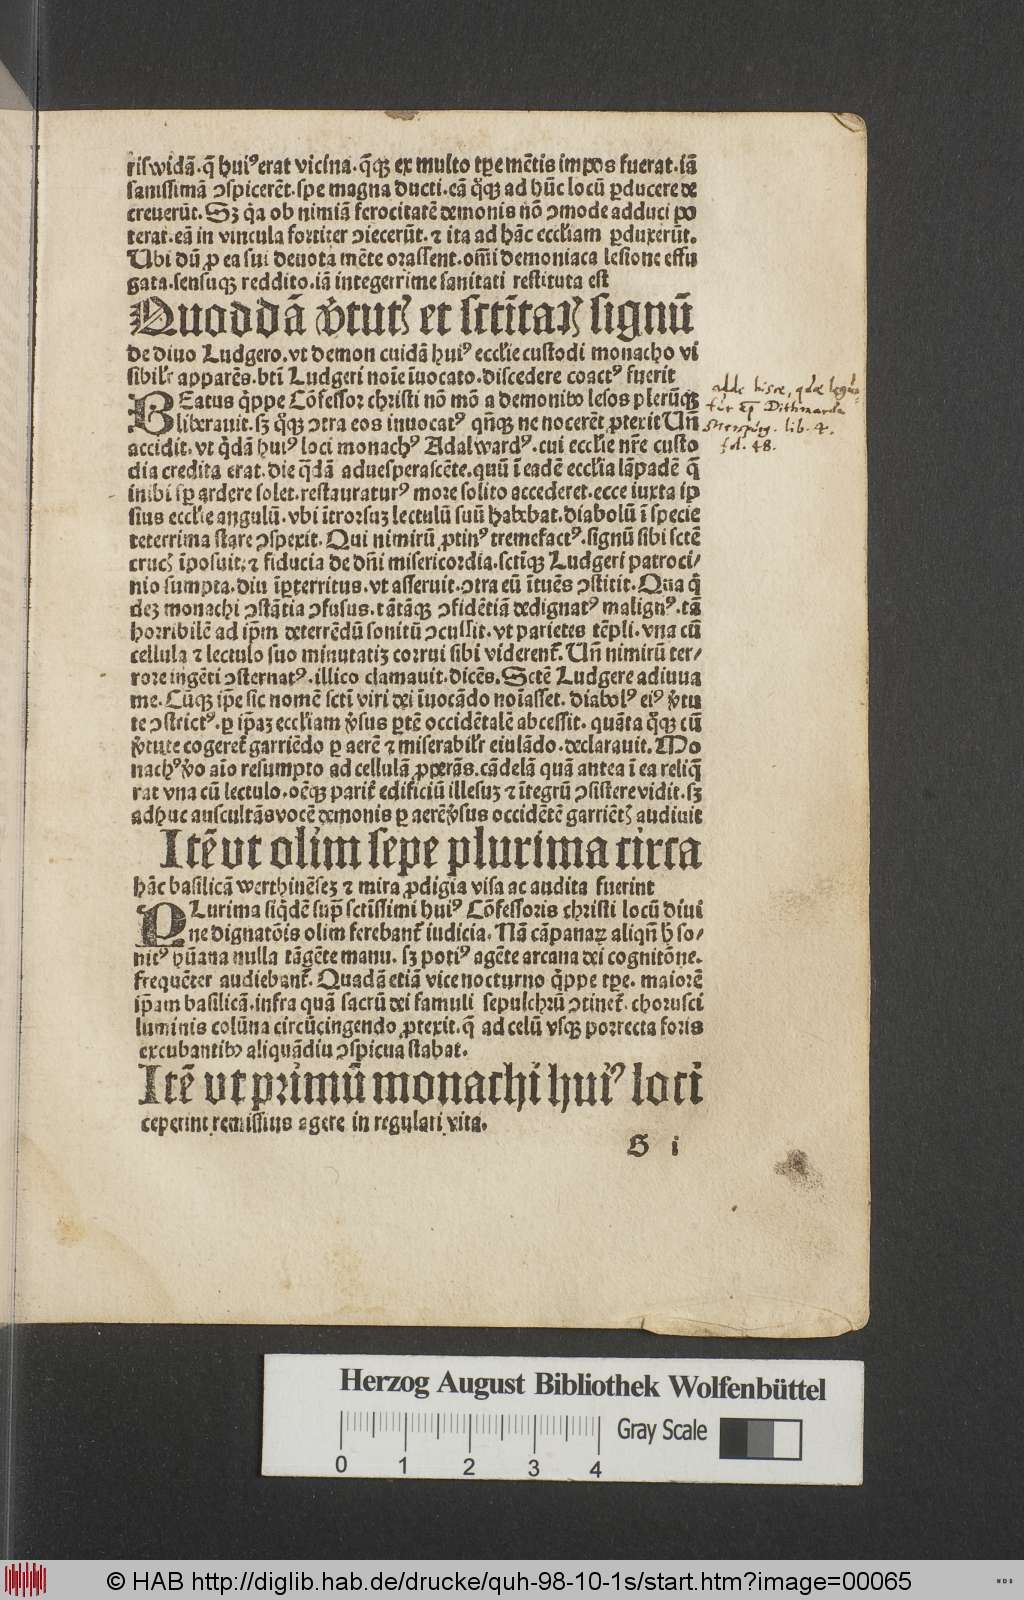 riswidā. q̄ huiꝰ erat vicina. qͣꝫ ex multo tꝑe mētis impos fuerat. iā
sanissimā ꝯspicerēt. spe magna ducti. eā qͦꝫ ad hūc locū ꝑducere de
creuerūt. Sꝫ qͥa ob nimiā ferocitatē demonis nō ꝯmode adduci po
terat. eā in vincula fortiter ꝯiecerūt. ⁊ ita ad hāc eccliam ꝑduxerūt.
Ubi dū ꝓ ea sui deuota mēte orassent. om̄i demoniaca lesione effu
gata. sensuqꝫ reddito. iā integerrime sanitati restituta est
Quoddā v̄tutꝭ et sctītaꝝ signū
de diuo Ludgero. vt demon cuidā huiꝰ ecclie custodi monacho vi
sibilr̄ apparēs. bt̄i Ludgeri noīe īuocato. discedere coactꝰ fuerit
BEatus qͥppe Cōfessor christi nō mō a demonibꝰ lesos plerūqꝫ
liberauit. sꝫ qͦꝫ ꝯtra eos inuocatꝰ qn̄qꝫ ne nocerēt ꝓtexit Un̄
accidit. vt qͥdā huiꝰ loci monachꝰ Adalwardꝰ. cui ecclie nr̄e custo
dia credita erat. die qͣdā aduesperascēte. quū ī eadē ecclia lāpadē q̄
inibi sp̄ ardere solet. restauraturꝰ more solito accederet. ecce iuxta ip̄
sius ecclie angulū. vbi ītrorsuꝫ lectulū suū habebat. diabolū ī specie
teterrima stare ꝯspexit. Qui nimirū ꝓtinꝰ tremefactꝰ. signū sibi sctē
crucꝭ īposuit. ⁊ fiducia de dn̄i misericordia. sctīqꝫ Ludgeri patroci⸗
nio sumpta. diu īꝑterritus. vt asseruit. ꝯtra eū ītuēs ꝯstitit. Qua qͥ
deꝫ monachi ꝯstātia ꝯfusus. tātāqꝫ ꝯfidētiā dedignatꝰ malignꝰ. tā
horribilē ad ip̄m deterrēdū sonitū ꝯcussit. vt parietes tēpli. vna cū
cellula ⁊ lectulo suo minutatiꝫ corrui sibi viderent̄. Un̄ nimirū ter⸗
rore ingēti ꝯsternatꝰ. illico clamauit. dicēs. Sctē Ludgere adiuua
me. Cūqꝫ ip̄e sic nomē sctī viri dei īuocādo noīasset. diabolꝰ eiꝰ v̄tu
te ꝯstrictꝰ. ꝑ ip̄aꝫ eccliam v̄sus ꝑtē occidētalē abcessit. quāta qͦꝫ cū
v̄tute cogeret̄ garriēdo ꝑ aerē ⁊ miserabilr̄ eiulādo. declarauit. Mo
nachꝰ v̄o aīo resumpto ad cellulā ꝓperās. cādelā quā antea ī ea reliq̄
rat vna cū lectulo. oēqꝫ parit̄ edificiū illesuꝫ ⁊ ītegrū ꝯsistere vidit. sꝫ
adhuc auscultās vocē demonis ꝑ aerē v̄sus occidētē garriētꝭ audiuit
Itē vt olim sepe plurima circa
hāc basilicā werthinēseꝫ ⁊ mira ꝓdigia visa ac audita fuerint
PLurima siqͥdē sup̄ sctīssimi huiꝰ Cōfessoris christi locū diui
ne dignatōis olim ferebant̄ iudicia. Nā cāpanaꝝ aliqn̄ hͥ so⸗
nitꝰ hūana nulla tāgēte manu. sꝫ potiꝰ agēte arcana dei cognitōne.
frequēter audiebant̄. Quadā etiā vice nocturno qͥppe tꝑe. maiorē
ip̄am basilicā. infra quā sacrū dei famuli sepulchrū ꝯtinet̄. chorusci
luminis colūna circūcingendo ꝓtexit. q̄ ad celū vsqꝫ porrecta foris
excubantibꝰ aliquādiu ꝯspicua stabat.
Itē vt primū monachi huiꝰ loci
ceperint remissius agere in regulari vita.
G i
adde hisce, quae
Dithmarus
Mersepurg. lib. 4.
fol. 48.
Herzog August Bibliothek Wolfenbüttel
0 1 2 3 4 Gray Scale
© HAB http://diglib.hab.de/drucke/quh-98-10-1s/start.htm?image=00065